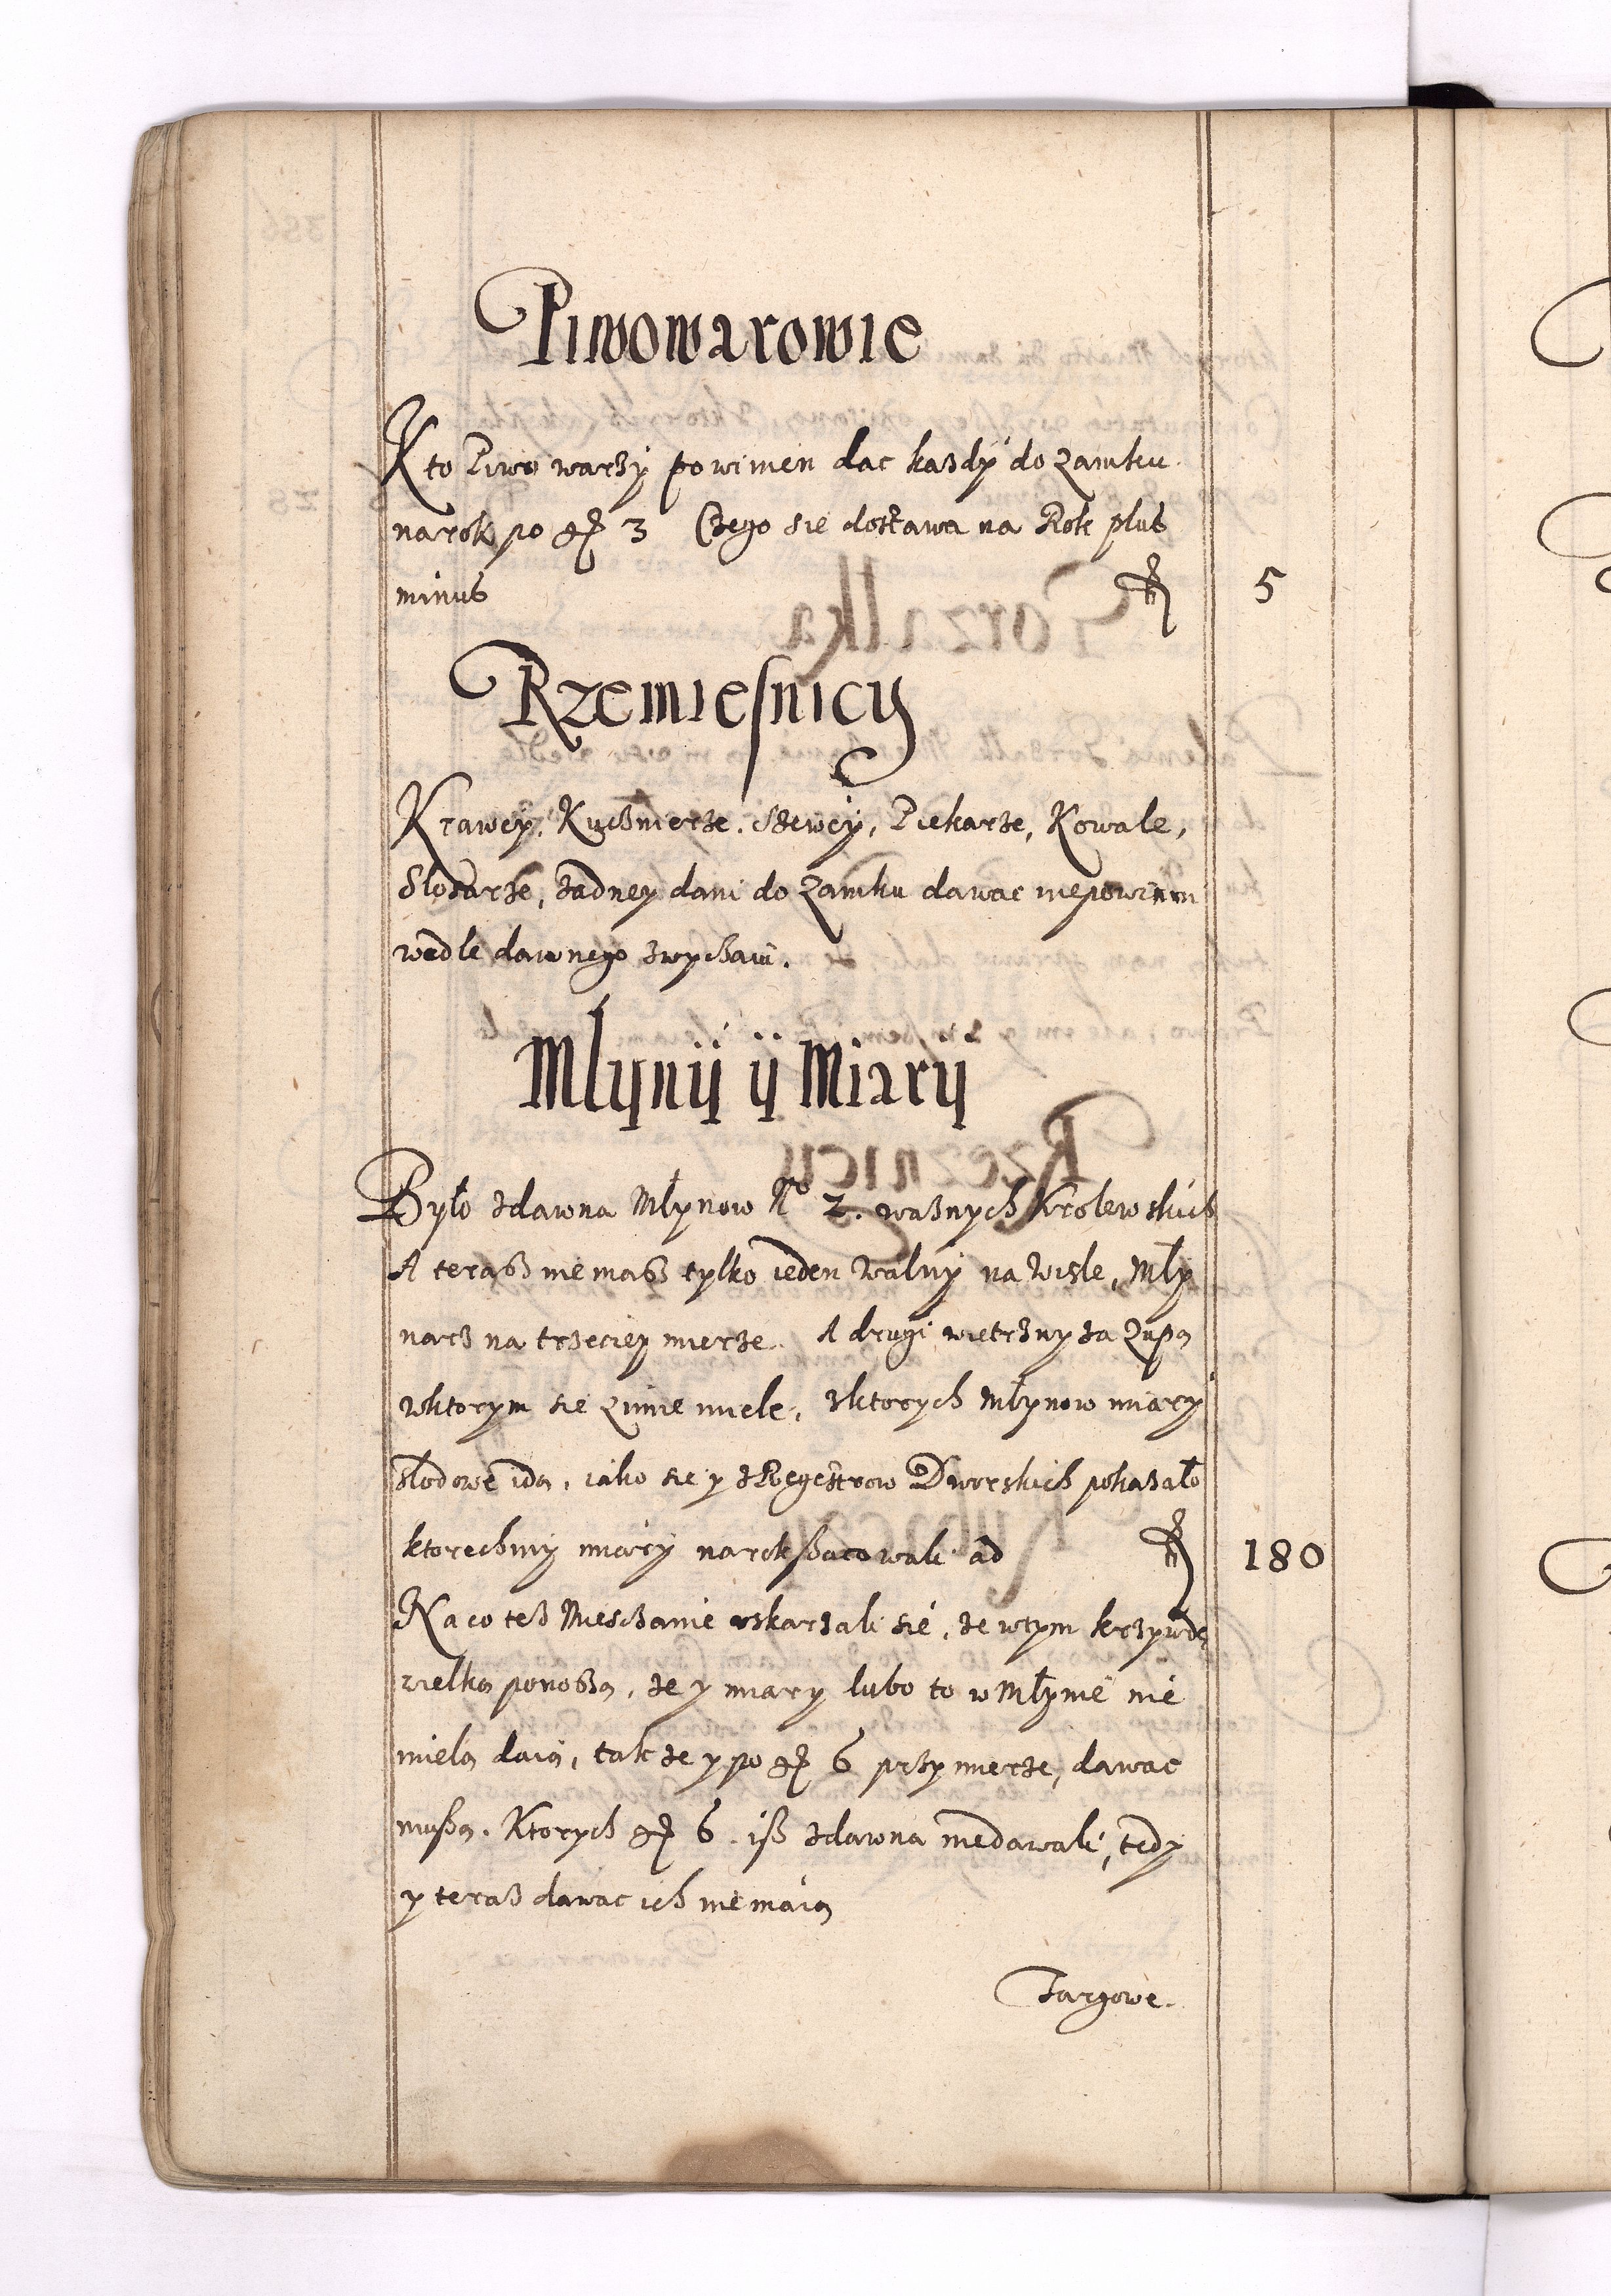 Piwowarowie
Kto Piwo warzÿ powinien dac kazdÿ do Zamku
na rok po gr 3 Czego sie dostawa na Rok plus
minus fl 5
Rzemiesnicÿ
Krawcÿ, Kuszmierze, Szewcÿ, Piekarze, Kowale,
Slosarze, zadney dani do Zamku dawac niepowinni
wedle dawnego zwyczaiu.
Mlÿnÿ ÿ Miarÿ
Było zdawna Młynow No 2. waznych Krolewskich
A terasz nie masz tylko ieden Walnÿ na Wisle, Mły
narz na trzeciey mierze. A drugi wietrznÿ za Zupą
wktorym sie Zimie miele, Zktorych Młynow miarÿ
słodowe idą, iako sie y z Regestrow Dworskich pokazało
ktorechmÿ miarÿ na rok szacowali ad fl 180
Na co tez Miesczanie uskarzali sie, ze wtym krzywdę
wielką ponoszą, ze y miary lubo to w Młynie nie
mielą daią, tak ze y po gr 6 przy mierze, dawac
muszą. Ktorych gr 6. isz zdawna niedawali, tedy
y teraz dawac ich nie maią
Targowe.